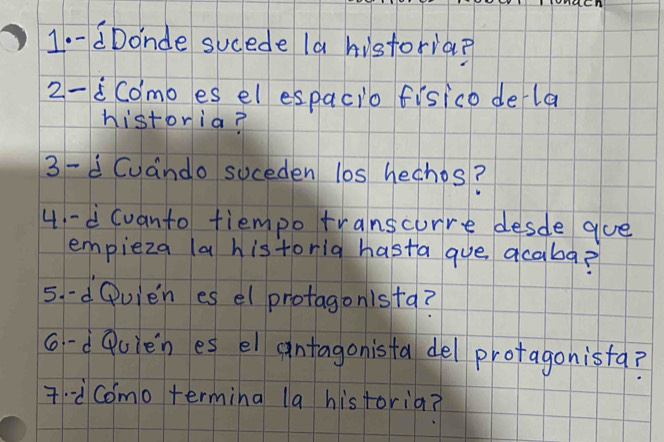 1.-¿Dónde sucede la historia?
2-¿Cómo es el espacio físico de la
historia?
3-¿Cuándo suceden los hechos?
4.-¿Cuanto tiempo transcurre desde que
empieza la historia hasta que acaba?
5.-¿Quién es el protagonista?
6.-¿Quién es el antagonista del protagonista?
7.-¿Cómo termina la historia?